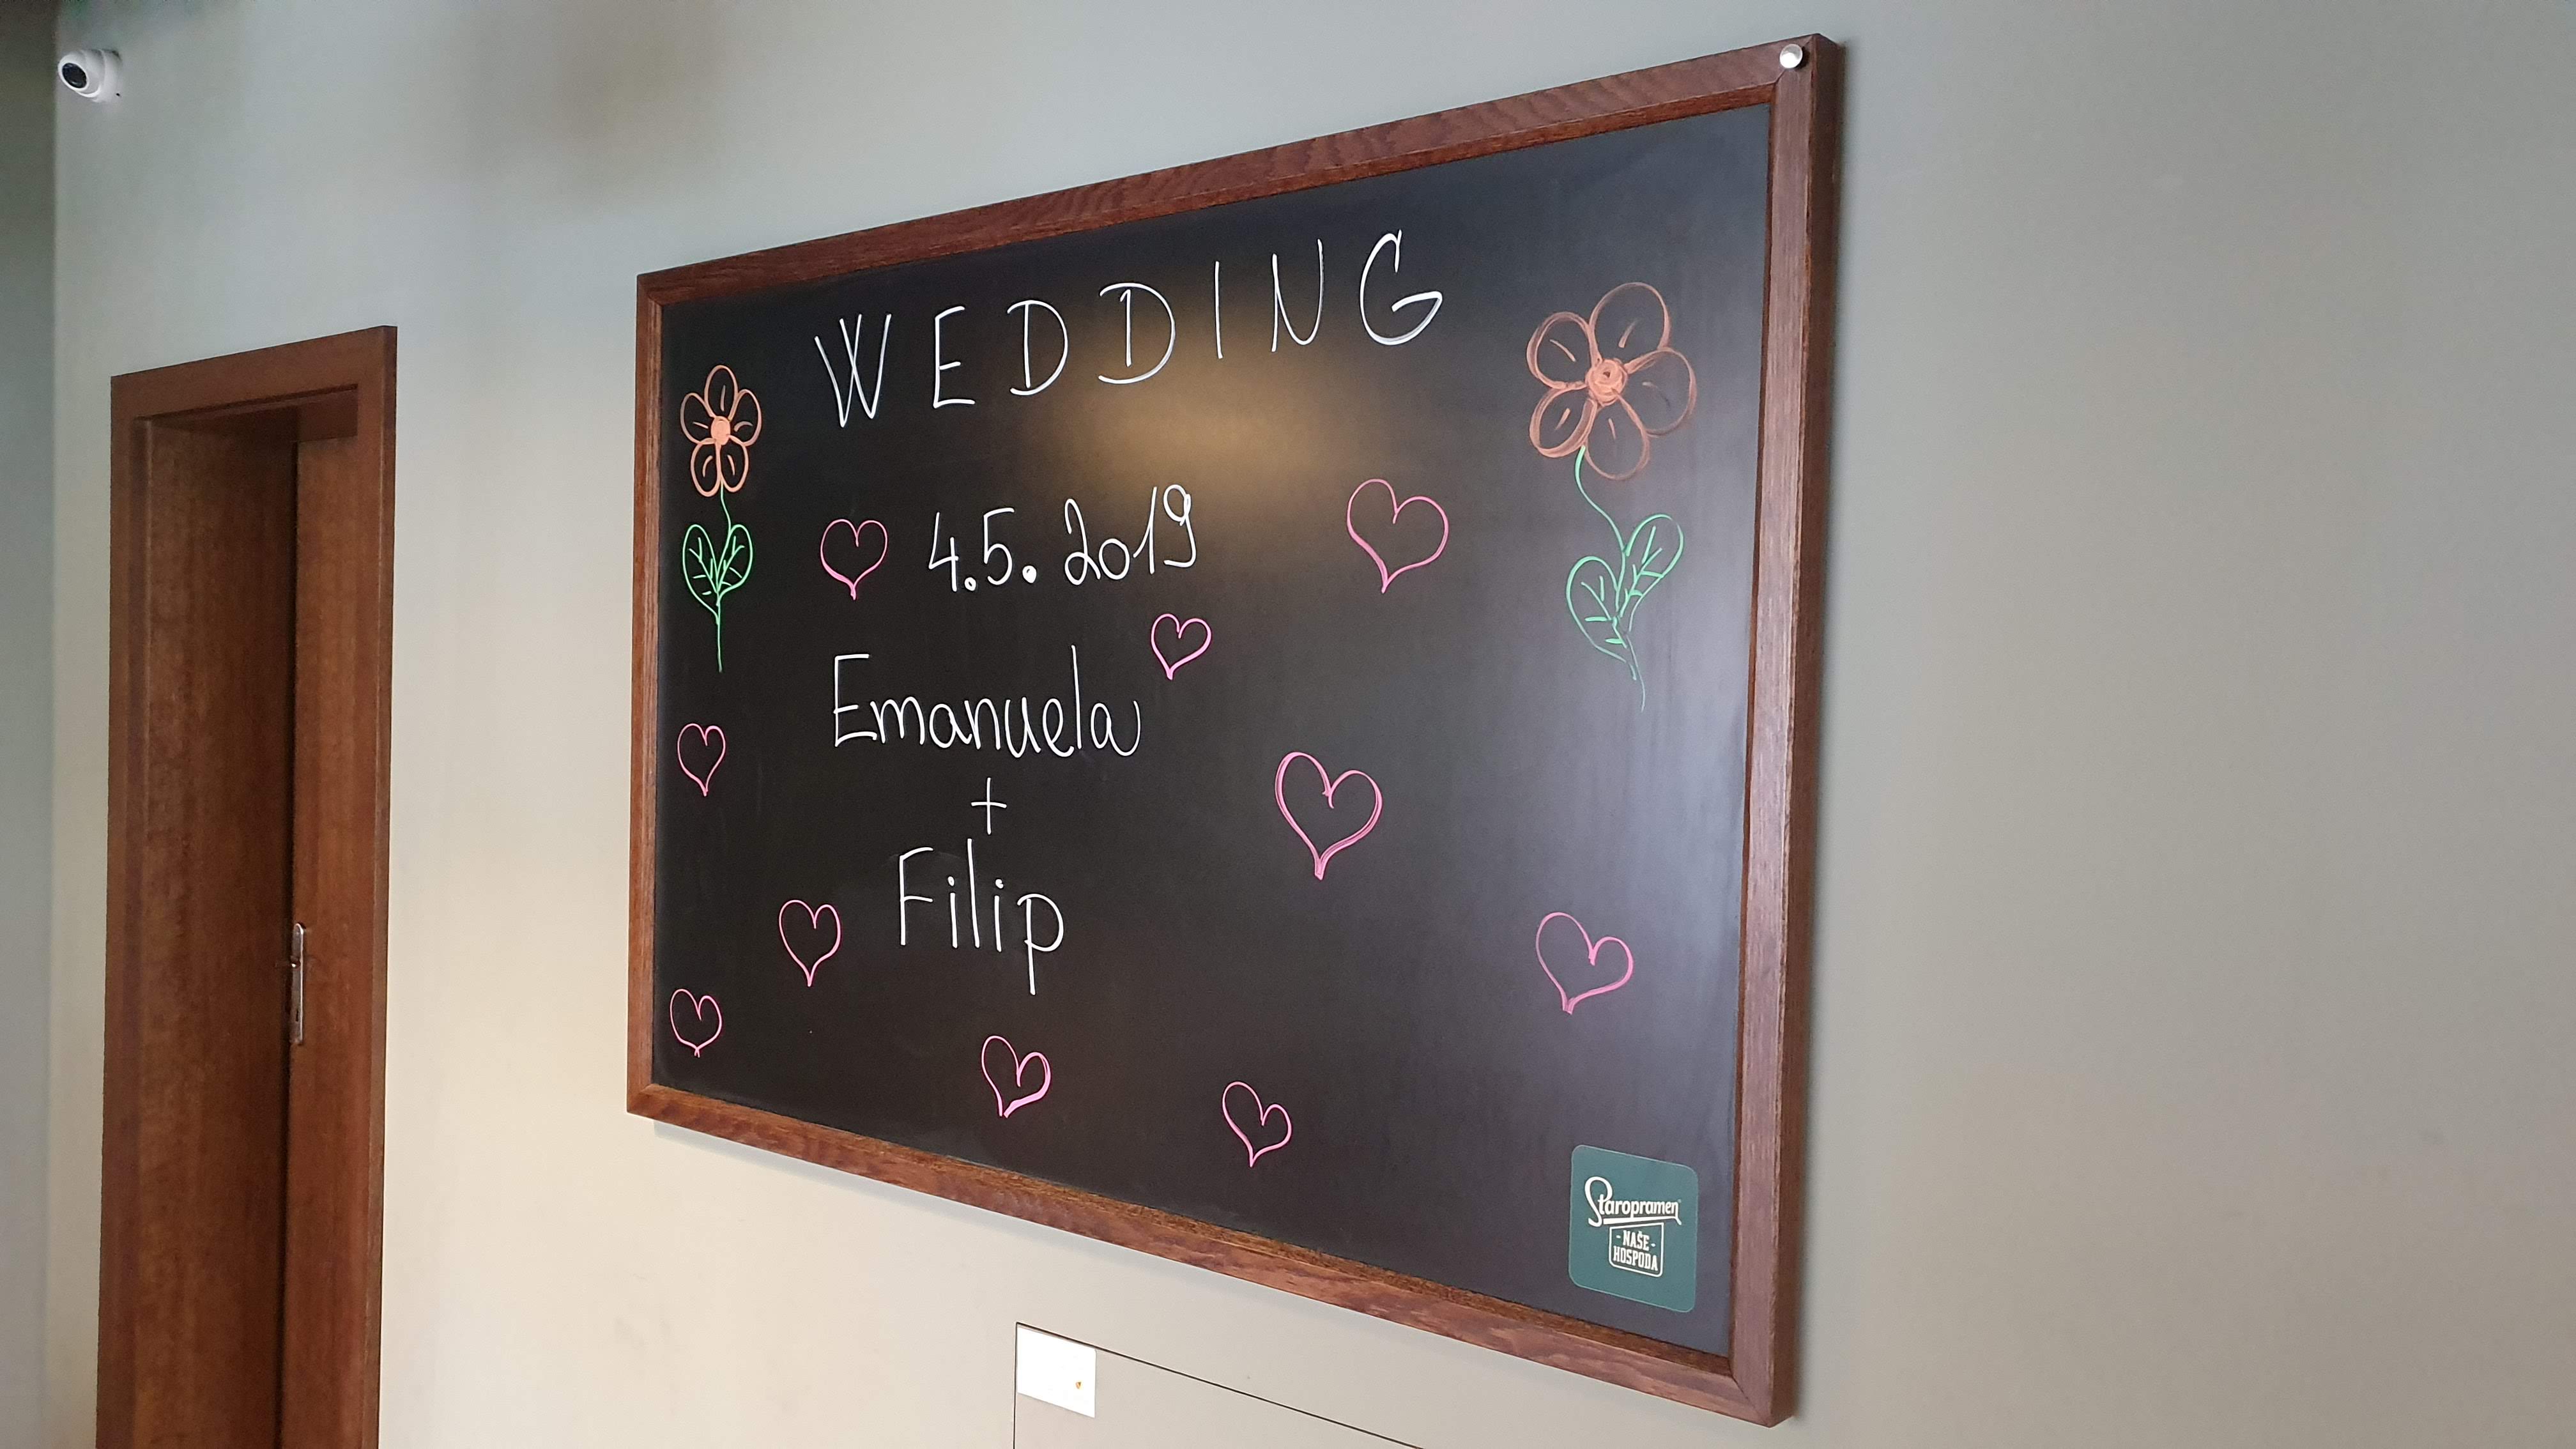 WEDDING
4.5. 2019
Emanuela
+
Filip
Staropramen
- NAŠE -
HOSPODA